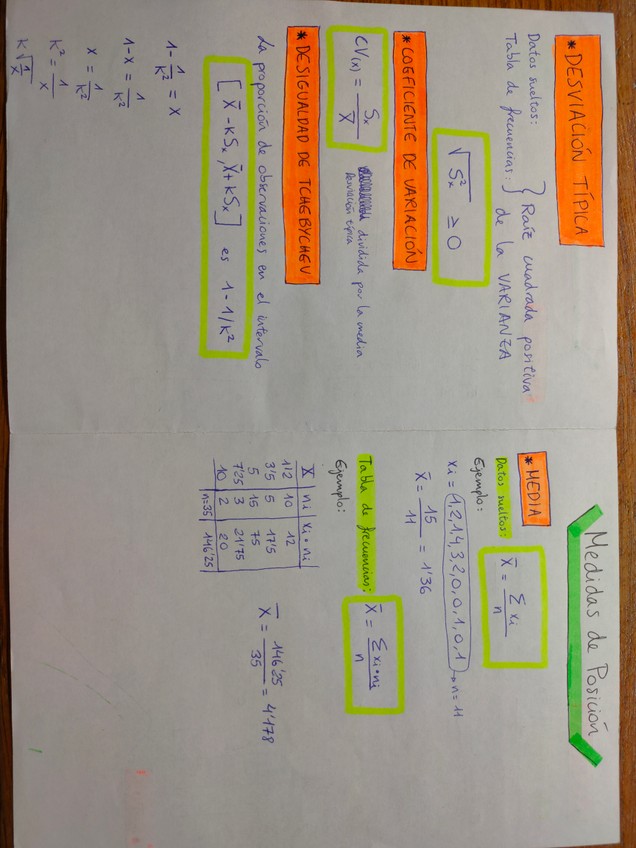 * DESVIACIÓN TÍPICA
Datos sueltos:
Tabla de frecuencias:
} Raíz cuadrada positiva
de la VARIANZA
√Sx² ≥ 0
* COEFICIENTE DE VARIACIÓN
CV(x) = Sx / X̄
dividida por la media
Desviación típica
* DESIGUALDAD DE TCHEBYCHEV
La proporción de observaciones en el intervalo
[X̄ - KSx, X̄ + KSx] es 1 - 1/k²
1 - 1/k² = x
1 - x = 1/k²
x = 1/k²
k² = 1/x
k √1/x
Medidas de Posición
* MEDIA
Datos sueltos: X̄ = Σxi / n
Ejemplo:
xi = 1, 2, 1, 4, 3, 2, 0, 0, 1, 0, 1 → n = 11
X̄ = 15 / 11 = 1'36
Tabla de frecuencias: X̄ = Σxi·ni / n
Ejemplo:
X ni xi·ni
1'2 10 12
3'5 5 17'5
5 15 75
7'25 3 21'75
10 2 20
n=35 146'25
X̄ = 146'25 / 35 = 4'178